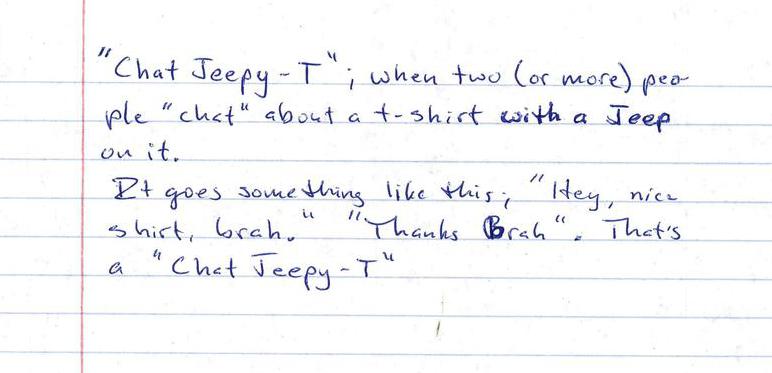 "Chat Jeepy-T"; when two (or more) peo-
ple "chat" about a t-shirt with a Jeep
on it.
It goes something like this; "Hey, nice
shirt, brah." "Thanks Brah". That's
a "Chat Jeepy-T"